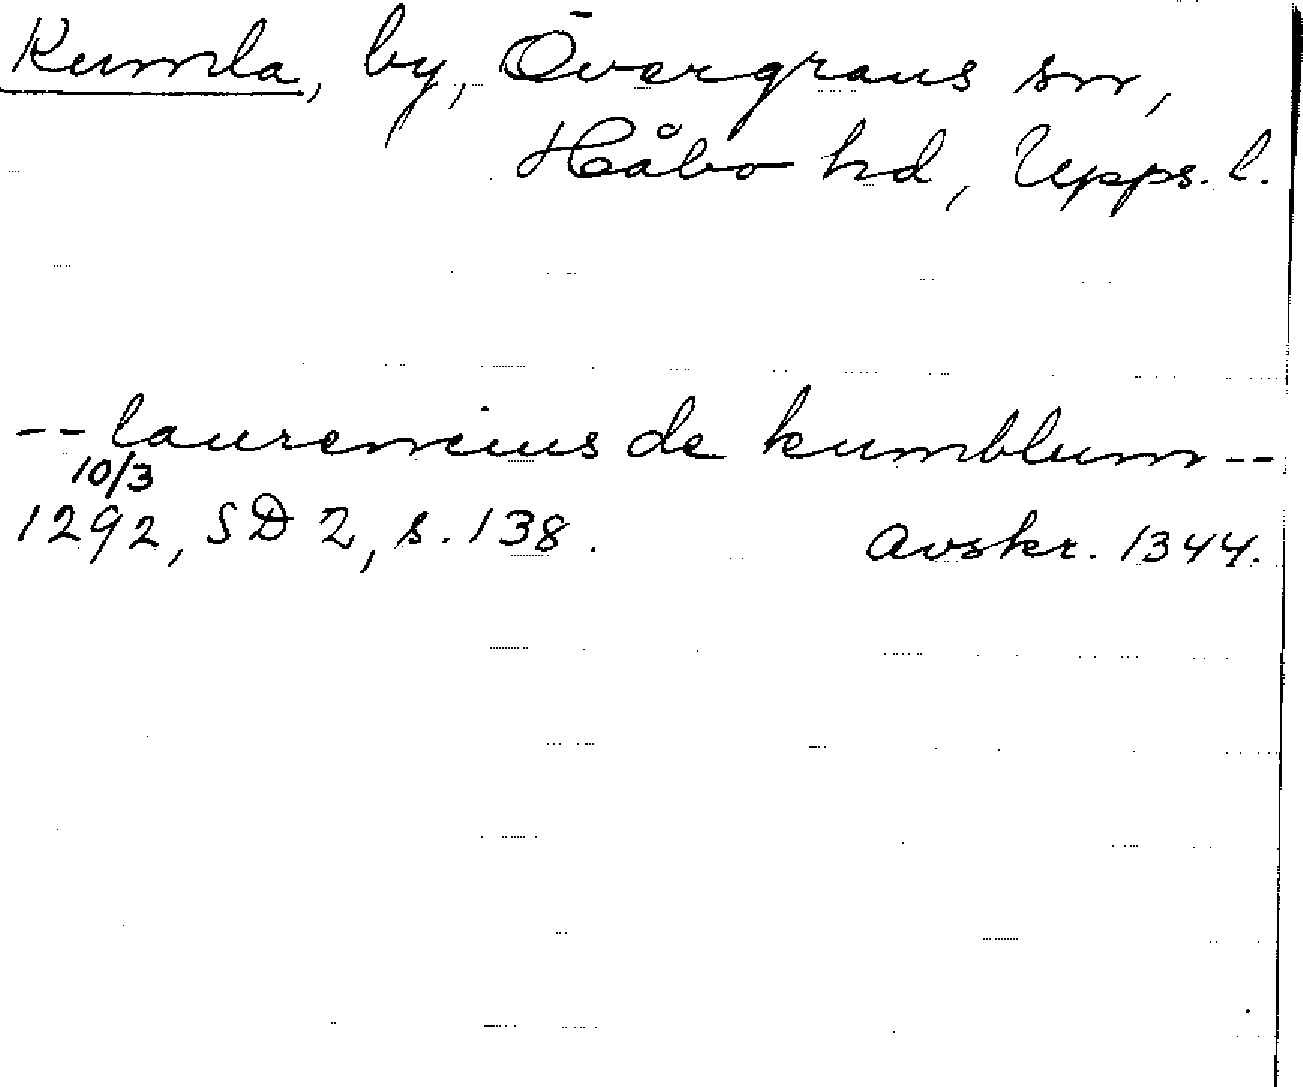 Kumla, by, Övergrans sn,
Håbo hd, Upps. l.
-- laurencius de kumblum --
10/3
1292, SD 2, s. 138. Avskr. 1344.